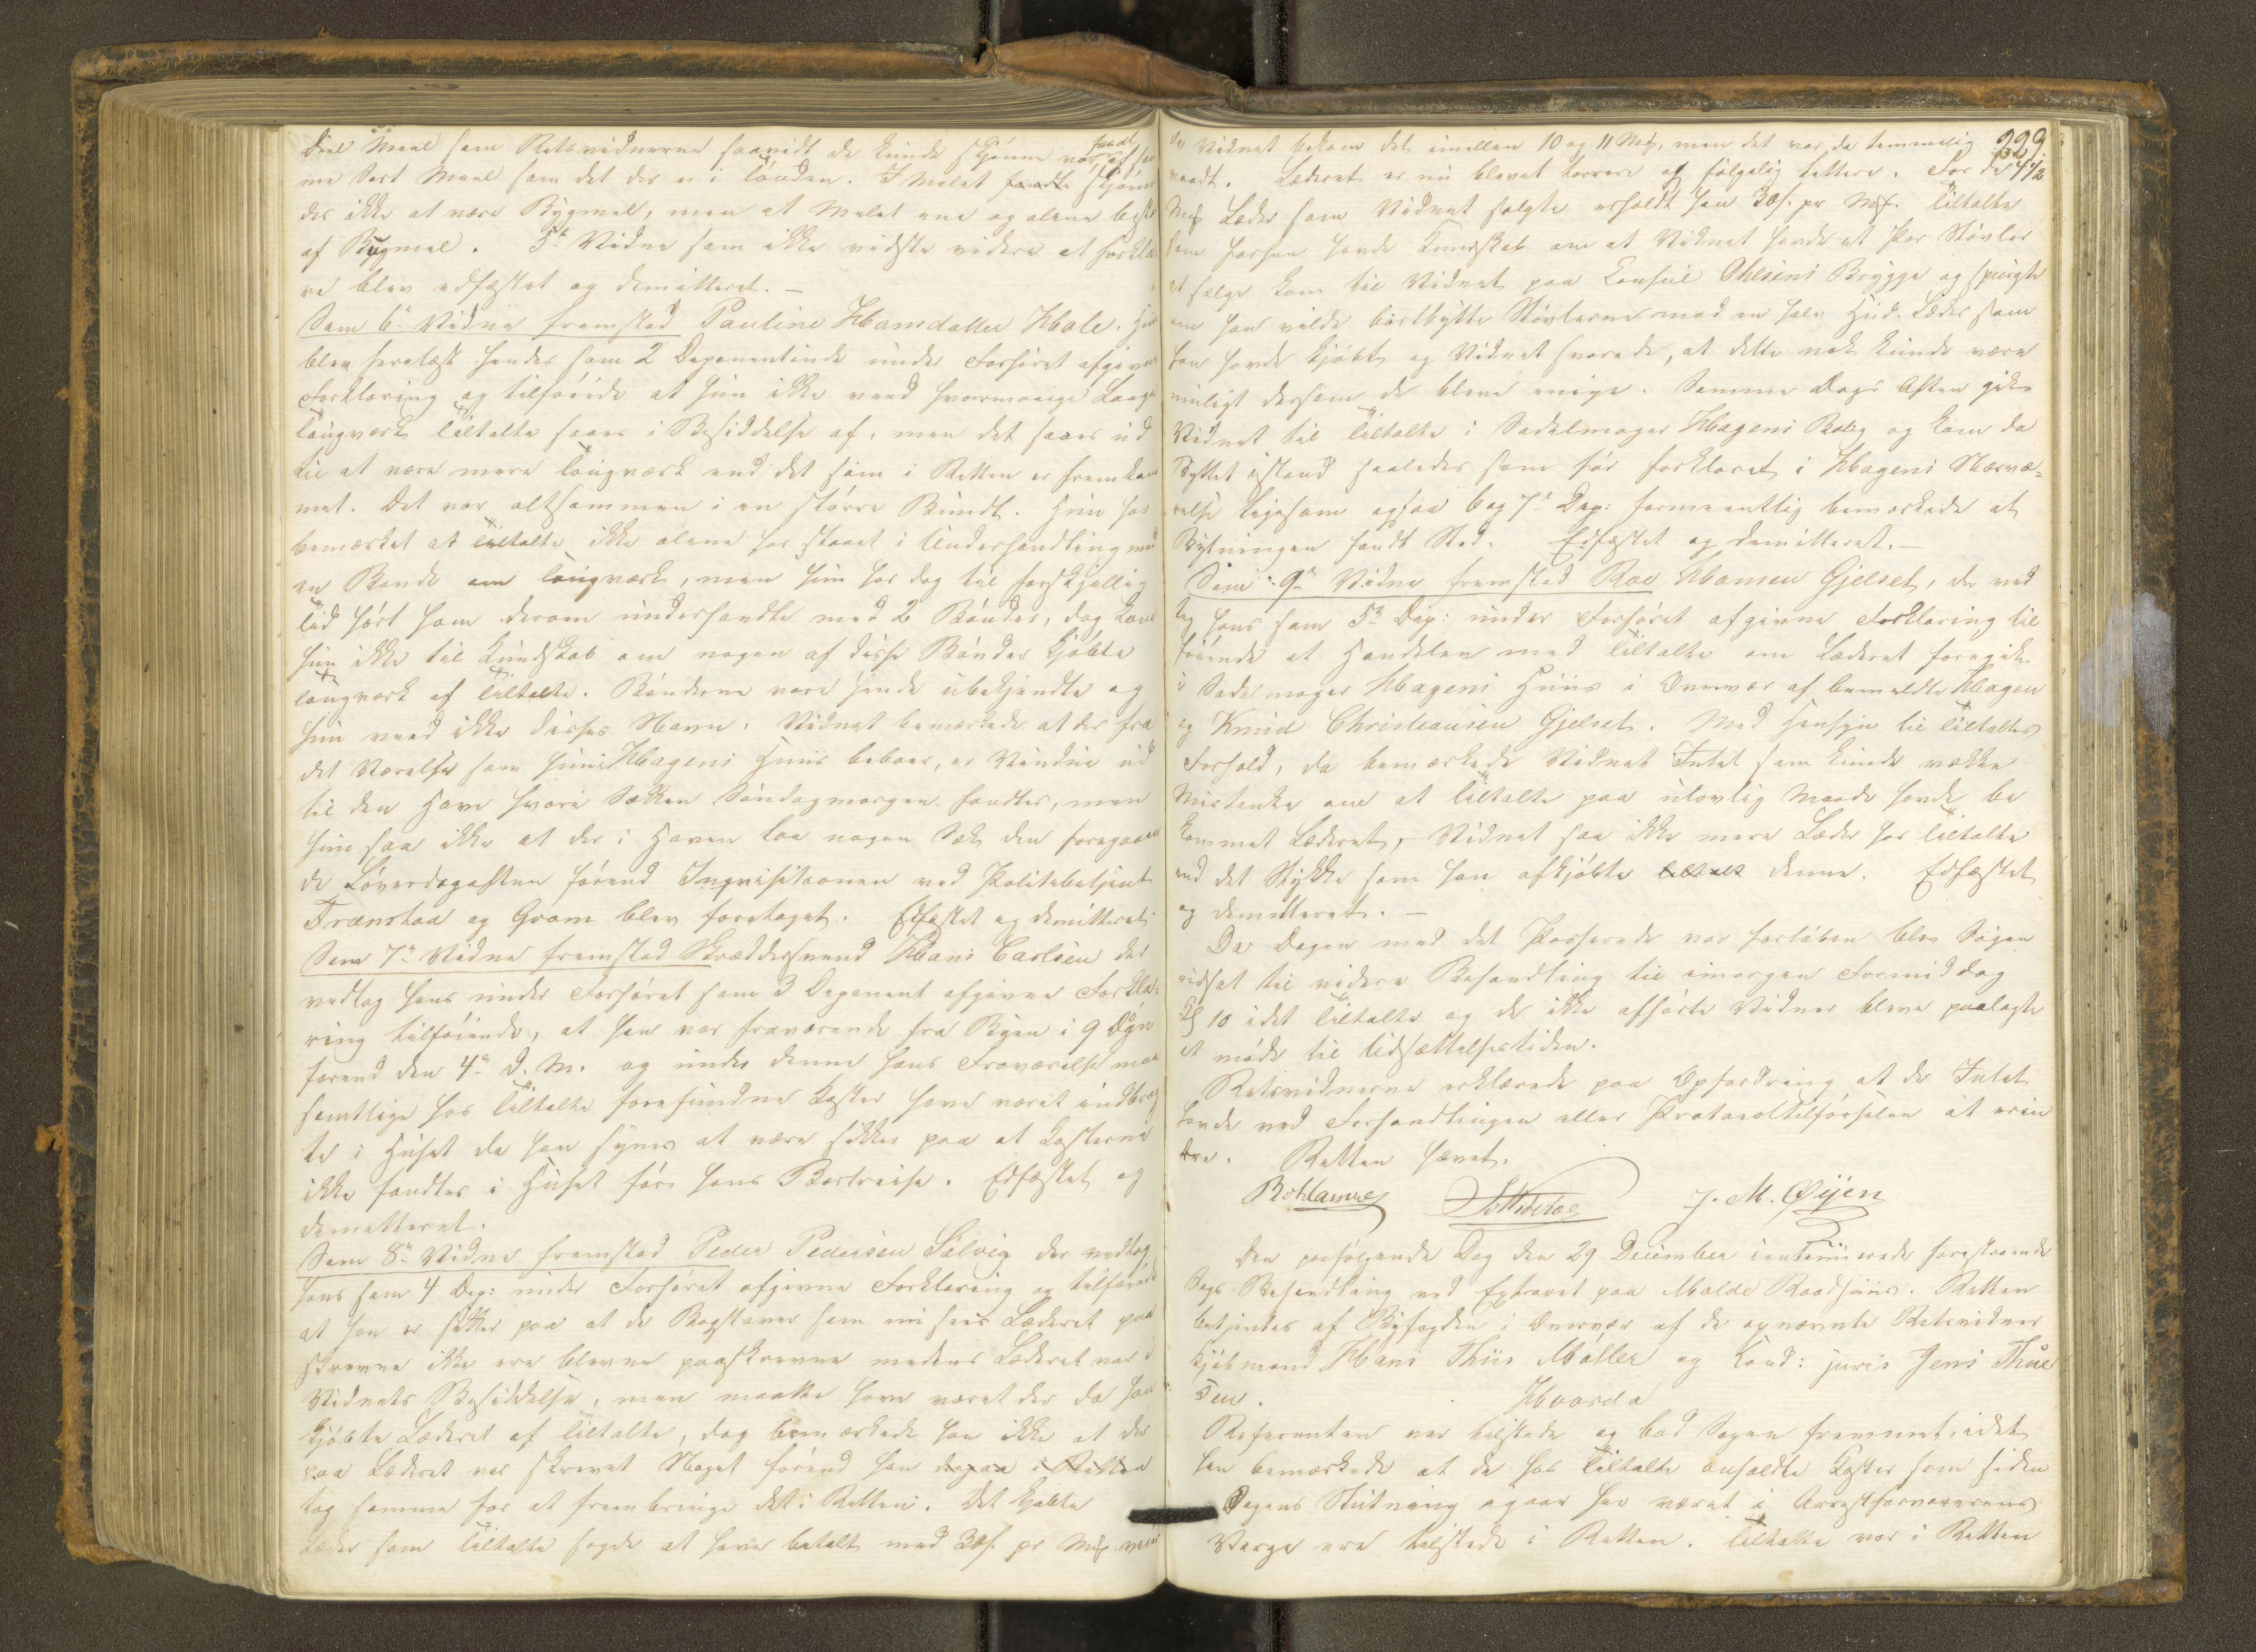 Deel Meel som Retsvidnerne saavidt de kunde skjønne var af sam
me Sort Meel som det der er i Tønden. I Melet fandtes skjønnes
der ikke at være Bygmel, men at Melet ene og alene bestod
af Rugmel. 5te Vidne som ikke vidste videre at forkla
re blev edfæstet og demitteret. —
Som 6te Vidne fremstod Pauline Hansdatter Hole. Hun
blev forelæst hendes som 2 Deponentinde under Forhøret afgivne
Forklaring og tilføiede at hun ikke veed hvormange Lægg
Tougværk Tiltalte saaes i Besiddelse af, men det saaes ud
til at være mere Tougværk end det som i Retten er fremkom
met. Det var altsammen i en større Bundt. Hun har
bemærket at Tiltalte ikke alene har staaet i Underhandling med
en Bonde om Tougværk, men hun har dog til forskjellig
Tid hørt ham derom underhandle med 2 Bønder, dog kom
hun ikke til Kundskab om nogen af disse Bønder kjøbte
Tougværk af Tiltalte. Bønderne vare hende ubekjendte og
hun veed ikke disses Navn. Vidnet bemærkede at der fra
det Værelse som hun i Hagens Huus beboer, er Vindue ud
til den Have hvori Sækken Søndagmorgen fandtes, men
hun saa ikke at der i Haven laa nogen Sæk den foregaaen
de Løverdagaften førend Inqvisitionen ved Politibetjent
Frænstad og Gram blev foretaget. Edfæstet og demitteret.
Som 7de Vidne fremstod Skræddersvend Hans Carlsen der
vedtog hans under Forhøret som 3 Deponent afgivne Forkla-
ring tilføiende, at han var fraværende fra Byen i 9 Døgn
førend den 4de d. M. og under denne hans Fraværelse maa
samtlige hos Tiltalte forefundne Koster have været indbrag
te i Huset da han synes at være sikker paa at Kosterne
ikke fandtes i Huset før hans Bortreise. Edfæstet og
demitteret.
Som 8de Vidne fremstod Peder Pedersen Solvig der vedtog
hans som 4 Dep: under Forhøret afgivne Forklaring og tilføiede
at han er sikker paa at de Bogstaver som nu sees Læderet paa
skrevne ikke ere blevne paaskrevne medens Læderet var i
Vidnets Besiddelse, men maatte have været der da han
kjøbte Læderet af Tiltalte, dog bemærkede han ikke at der
paa Læderet var skrevet Noget førend han i Retten
tog samme for at frembringe det i Retten. Det kjøbte
Læder som Tiltalte sagde at have betalt med 30 s. pr Mk veiede
229
da Vidnet bekom det imellem 10 og 11 Mk, men det var da temmelig
vaadt. Læderet er nu blevet tørrere og følgelig lettere. For de 4 1/2
Mk Læder som Vidnet solgte erholdt han 30 s. pr Mk. Tiltalte
som forhen havde Kundskab om at Vidnet havde et Par Støvler
at sælge kom til Vidnet paa Consul Ohlsens Brygge og spurgte
om han vilde bortbytte Støvlerne mod en halv Hud Læder som
han havde kjøbt og Vidnet svarede, at dette nok kunde være
muligt dersom de bleve enige. Samme Dags Aften gik
Vidnet til Tiltalte i Sadelmager Hagens Bolig og kom da
Byttet istand saaledes som før forklaret i Hagens Nærvæ-
relse ligesom ogsaa 6 og 7de Dep: formeentlig bemærkede at
Bytningen fandt Sted. Edfæstet og demitteret. —
Som 9de Vidne fremstod Roe Hansen Gjelset, der ved
tog hans som 5te Dep: under Forhøret afgivne Forklaring til
føiende at Handelen med Tiltalte om Læderet foregik
i Sadelmager Hagens Huus i Overvær af bemeldte Hagen
og Knud Christiansen Gjelset. Med Hensyn til Tiltaltes
Forhold, da bemærkede Vidnet Intet som kunde vække
Mistanke om at Tiltalte paa ulovlig Maade havde be
kommet Læderet, Vidnet saa ikke mere Læder hos Tiltalte
end det Stykke som han afkjøbte denne. Edfæstet
og demitteret. —
Da Dagen med det Passerede var forløben blev Sagen
udsat til videre Behandling til imorgen Formiddag
Kl 10 idet Tiltalte og de ikke afhørte Vidner bleve paalagte
at møde til Udsættelsestiden.
Retsvidnerne erklærede paa Opfordring at de Intet
havde ved Forhandlingen eller Protocoltilførselen at erin
dre. Retten hævet.
J. M. Øijen
Den paafølgende Dag den 29 December continuerede foregaaende
Sags Behandling ved Extraret paa Molde Raadhuus. Retten
betjentes af Byfogden i Overvær af de opnævnte Retsvidner
Kjøbmand Hans Thiis Møller og Cand: juris Jens Thue
sen. Hvorda
Referenten var tilstede og bad Sagen fremmet idet
han bemærkede at de hos Tiltalte anholdte Koster som siden
Dagens Slutning igaar har været i Arrestforvarerens
Værge ere tilstede i Retten. Tiltalte var i Retten